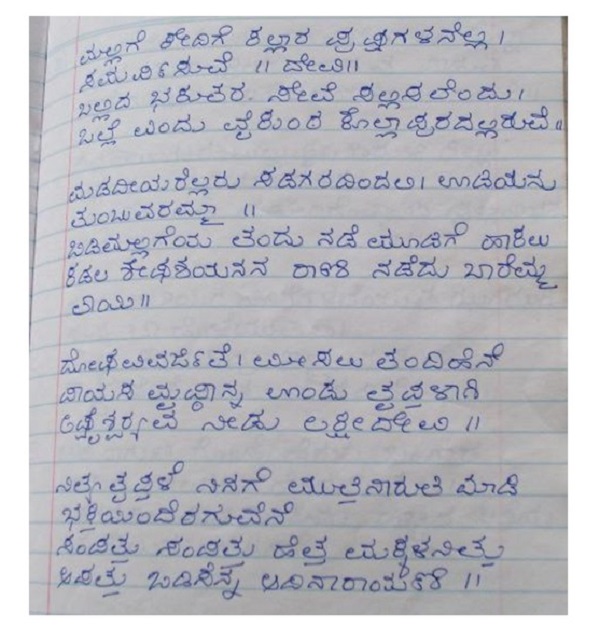 ಮಲ್ಲಿಗೆ ಕೇದಿಗೆ ಕಲ್ಹಾರ ಪುಷ್ಪಗಳನೆಲ್ಲ ।
ಸಮರ್ಪಿಸುವೆ ॥ ದೇವಿ॥
ಬಲ್ಲಿದ ಭಕುತರ ಸೇವೆ ಸಲ್ಲಿಸಲೆಂದು।
ಒಲ್ಲೆ ಎಂದು ವೈಕುಂಠ ಕೊಲ್ಲಾಪುರದಲ್ಲಿರುವೆ॥
ಮಡದೀಯರೆಲ್ಲರು ಸಡಗರದಿಂದಲಿ। ಉಡಿಯನು
ತುಂಬುವರಮ್ಮಾ ॥
ಬಿಡಿಮಲ್ಲಿಗೆಯ ತಂದು ನಡೆ ಮೂಡಿಗೆ ಹಾಕಲು
ಕಡಲ ಶೇಷಶಯನನ ರಾಣಿ ನಡೆದು ಬಾರೆಮ್ಮ
ತಾಯಿ॥
ದೋಷವಿವರ್ಜಿತೆ। ಮೀಸಲು ತಂದಿಹೆನೆ
ಪಾಯಸ ಮೃಷ್ಟಾನ್ನ ಉಂಡು ತೃಪ್ತಳಾಗಿ
ಅಷ್ಟೈಶ್ವರ್ಯವ ನೀಡು ಲಕ್ಷ್ಮೀದೇವಿ ॥
ನಿತ್ಯತೃಪ್ತಳೆ ನಿನಗೆ ಮುತ್ತಿನಾರುತಿ ಮಾಡಿ
ಭಕ್ತಿಯಿಂದೆರಗುವೆನೆ
ಸಂಪತ್ತು ಸಂಪತ್ತು ಹೆತ್ತ ಮಕ್ಕಳನಿತ್ತು
ಆಪತ್ತು ಬಿಡಿಸೆನ್ನ ಆದಿನಾರಾಯಣಿ ॥